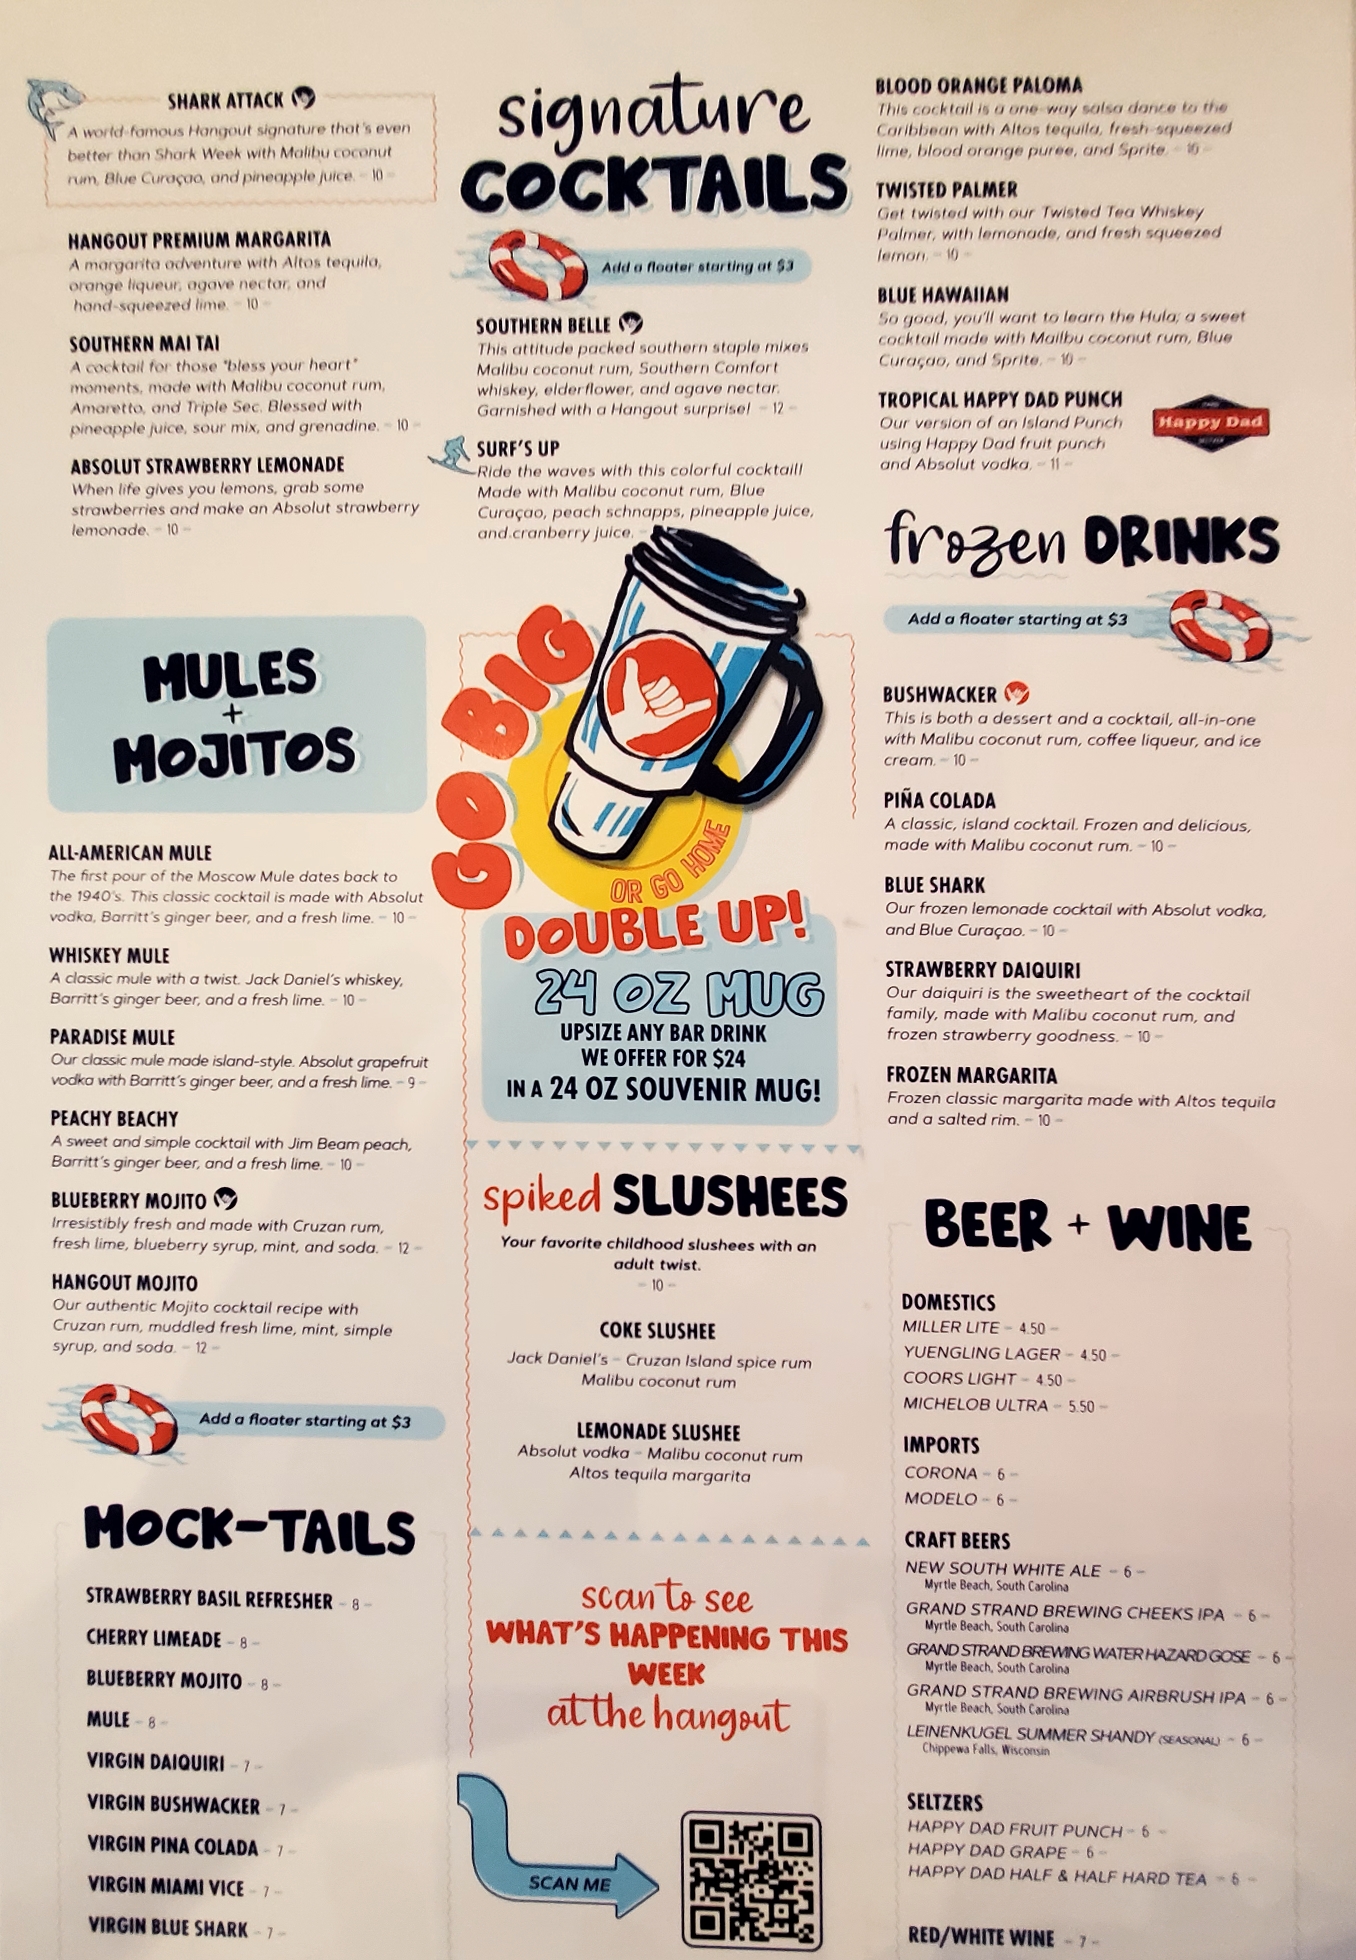 SHARK ATTACK
A world-famous Hangout signature that's even
better than Shark Week with Malibu coconut
rum, Blue Curaçao, and pineapple juice. - 10 -
HANGOUT PREMIUM MARGARITA
A margarita adventure with Altos tequila,
orange liqueur, agave nectar, and
hand-squeezed lime. - 10 -
SOUTHERN MAI TAI
A cocktail for those "bless your heart"
moments, made with Malibu coconut rum,
Amaretto, and Triple Sec. Blessed with
pineapple juice, sour mix, and grenadine. - 10 -
ABSOLUT STRAWBERRY LEMONADE
When life gives you lemons, grab some
strawberries and make an Absolut strawberry
lemonade. - 10 -
MULES
+
MOJITOS
ALL-AMERICAN MULE
The first pour of the Moscow Mule dates back to
the 1940's. This classic cocktail is made with Absolut
vodka, Barritt's ginger beer, and a fresh lime. - 10 -
WHISKEY MULE
A classic mule with a twist. Jack Daniel's whiskey,
Barritt's ginger beer, and a fresh lime. - 10 -
PARADISE MULE
Our classic mule made island-style. Absolut grapefruit
vodka with Barritt's ginger beer, and a fresh lime. - 9 -
PEACHY BEACHY
A sweet and simple cocktail with Jim Beam peach,
Barritt's ginger beer, and a fresh lime. - 10 -
BLUEBERRY MOJITO
Irresistibly fresh and made with Cruzan rum,
fresh lime, blueberry syrup, mint, and soda. - 12 -
HANGOUT MOJITO
Our authentic Mojito cocktail recipe with
Cruzan rum, muddled fresh lime, mint, simple
syrup, and soda. - 12 -
Add a floater starting at $3
MOCK-TAILS
STRAWBERRY BASIL REFRESHER - 8 -
CHERRY LIMEADE - 8 -
BLUEBERRY MOJITO - 8 -
MULE - 8 -
VIRGIN DAIQUIRI - 7 -
VIRGIN BUSHWACKER - 7 -
VIRGIN PINA COLADA - 7 -
VIRGIN MIAMI VICE - 7 -
VIRGIN BLUE SHARK - 7 -
signature
COCKTAILS
Add a floater starting at $3
SOUTHERN BELLE
This attitude packed southern staple mixes
Malibu coconut rum, Southern Comfort
whiskey, elderflower, and agave nectar.
Garnished with a Hangout surprise! - 12 -
SURF'S UP
Ride the waves with this colorful cocktail!
Made with Malibu coconut rum, Blue
Curaçao, peach schnapps, pineapple juice,
and cranberry juice. -
GO BIG
OR GO HOME
DOUBLE UP!
24 OZ MUG
UPSIZE ANY BAR DRINK
WE OFFER FOR $24
IN A 24 OZ SOUVENIR MUG!
spiked SLUSHEES
Your favorite childhood slushees with an
adult twist.
- 10 -
COKE SLUSHEE
Jack Daniel's - Cruzan Island spice rum
Malibu coconut rum
LEMONADE SLUSHEE
Absolut vodka - Malibu coconut rum
Altos tequila margarita
scan to see
WHAT'S HAPPENING THIS
WEEK
at the hangout
SCAN ME
BLOOD ORANGE PALOMA
This cocktail is a one-way salsa dance to the
Caribbean with Altos tequila, fresh-squeezed
lime, blood orange puree, and Sprite. - 10 -
TWISTED PALMER
Get twisted with our Twisted Tea Whiskey
Palmer, with lemonade, and fresh squeezed
lemon. - 10 -
BLUE HAWAIIAN
So good, you'll want to learn the Hula; a sweet
cocktail made with Mailbu coconut rum, Blue
Curaçao, and Sprite. - 10 -
TROPICAL HAPPY DAD PUNCH
Our version of an Island Punch
using Happy Dad fruit punch
and Absolut vodka. - 11 -
Happy Dad
frozen DRINKS
Add a floater starting at $3
BUSHWACKER
This is both a dessert and a cocktail, all-in-one
with Malibu coconut rum, coffee liqueur, and ice
cream. - 10 -
PIÑA COLADA
A classic, island cocktail. Frozen and delicious,
made with Malibu coconut rum. - 10 -
BLUE SHARK
Our frozen lemonade cocktail with Absolut vodka,
and Blue Curaçao. - 10 -
STRAWBERRY DAIQUIRI
Our daiquiri is the sweetheart of the cocktail
family, made with Malibu coconut rum, and
frozen strawberry goodness. - 10 -
FROZEN MARGARITA
Frozen classic margarita made with Altos tequila
and a salted rim. - 10 -
BEER + WINE
DOMESTICS
MILLER LITE - 4.50 -
YUENGLING LAGER - 4.50 -
COORS LIGHT - 4.50 -
MICHELOB ULTRA - 5.50 -
IMPORTS
CORONA - 6 -
MODELO - 6 -
CRAFT BEERS
NEW SOUTH WHITE ALE - 6 -
Myrtle Beach, South Carolina
GRAND STRAND BREWING CHEEKS IPA - 6 -
Myrtle Beach, South Carolina
GRAND STRAND BREWING WATER HAZARD GOSE - 6 -
Myrtle Beach, South Carolina
GRAND STRAND BREWING AIRBRUSH IPA - 6 -
Myrtle Beach, South Carolina
LEINENKUGEL SUMMER SHANDY (SEASONAL) - 6 -
Chippewa Falls, Wisconsin
SELTZERS
HAPPY DAD FRUIT PUNCH - 6 -
HAPPY DAD GRAPE - 6 -
HAPPY DAD HALF & HALF HARD TEA - 6 -
RED/WHITE WINE - 7 -